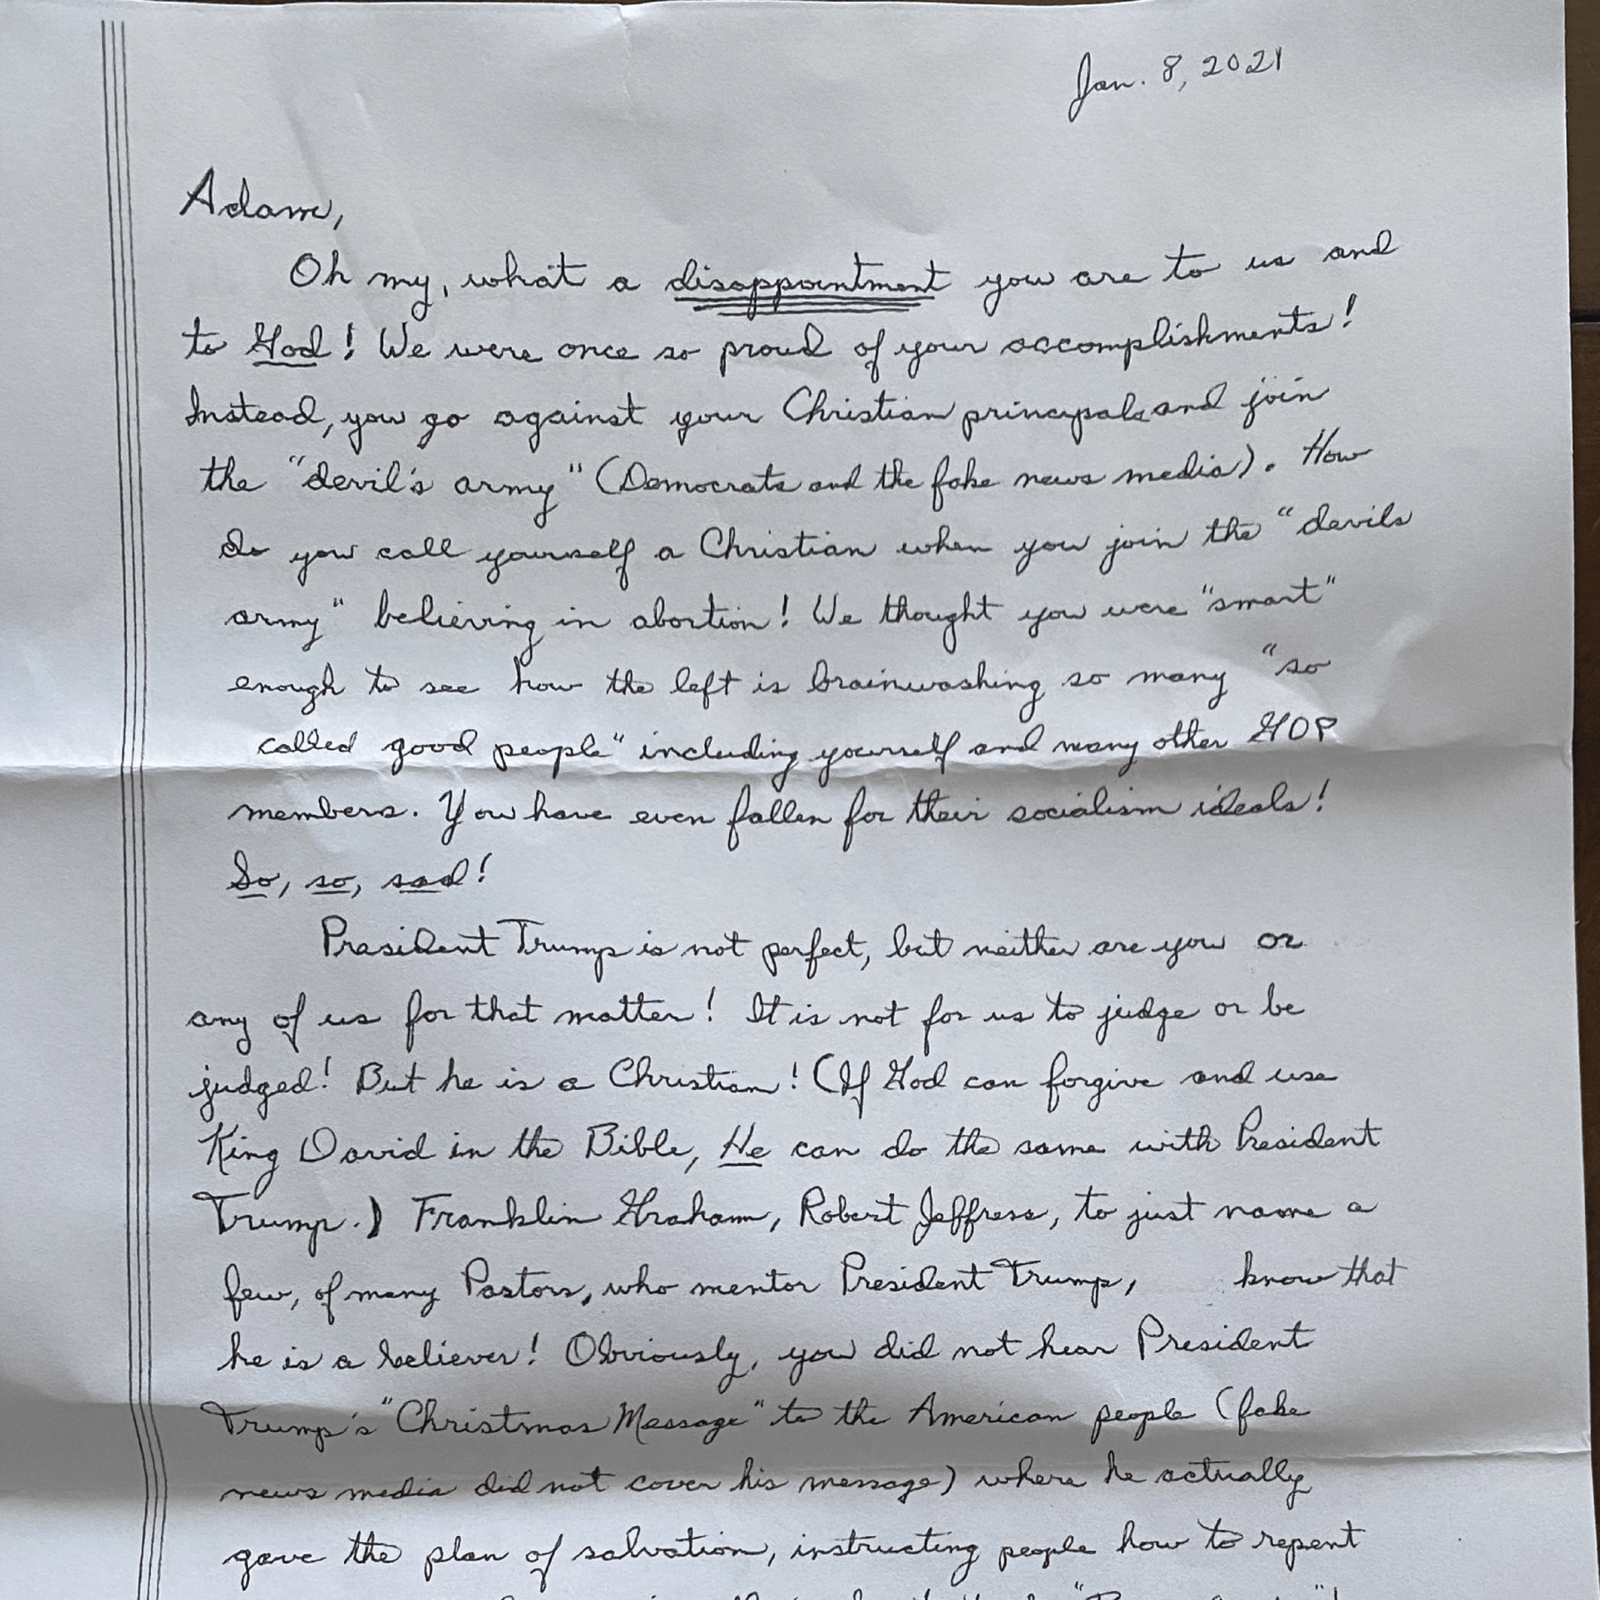 Jan. 8, 2021
Adam,
Oh my, what a disappointment you are to us and
to God! We were once so proud of your accomplishments!
Instead, you go against your Christian principals and join
the "devil's army" (Democrats and the fake news media). How
do you call yourself a Christian when you join the "devils
army" believing in abortion! We thought you were "smart"
enough to see how the left is brainwashing so many "so
called good people" including yourself and many other GOP
members. You have even fallen for their socialism ideals!
So, so, sad!
President Trump is not perfect, but neither are you or
any of us for that matter! It is not for us to judge or be
judged! But he is a Christian! (If God can forgive and use
King David in the Bible, He can do the same with President
Trump.) Franklin Graham, Robert Jeffress, to just name a
few, of many Pastors, who mentor President Trump, know that
he is a believer! Obviously, you did not hear President
Trump's "Christmas Message" to the American people (fake
news media did not cover his message) where he actually
gave the plan of salvation, instructing people how to repent